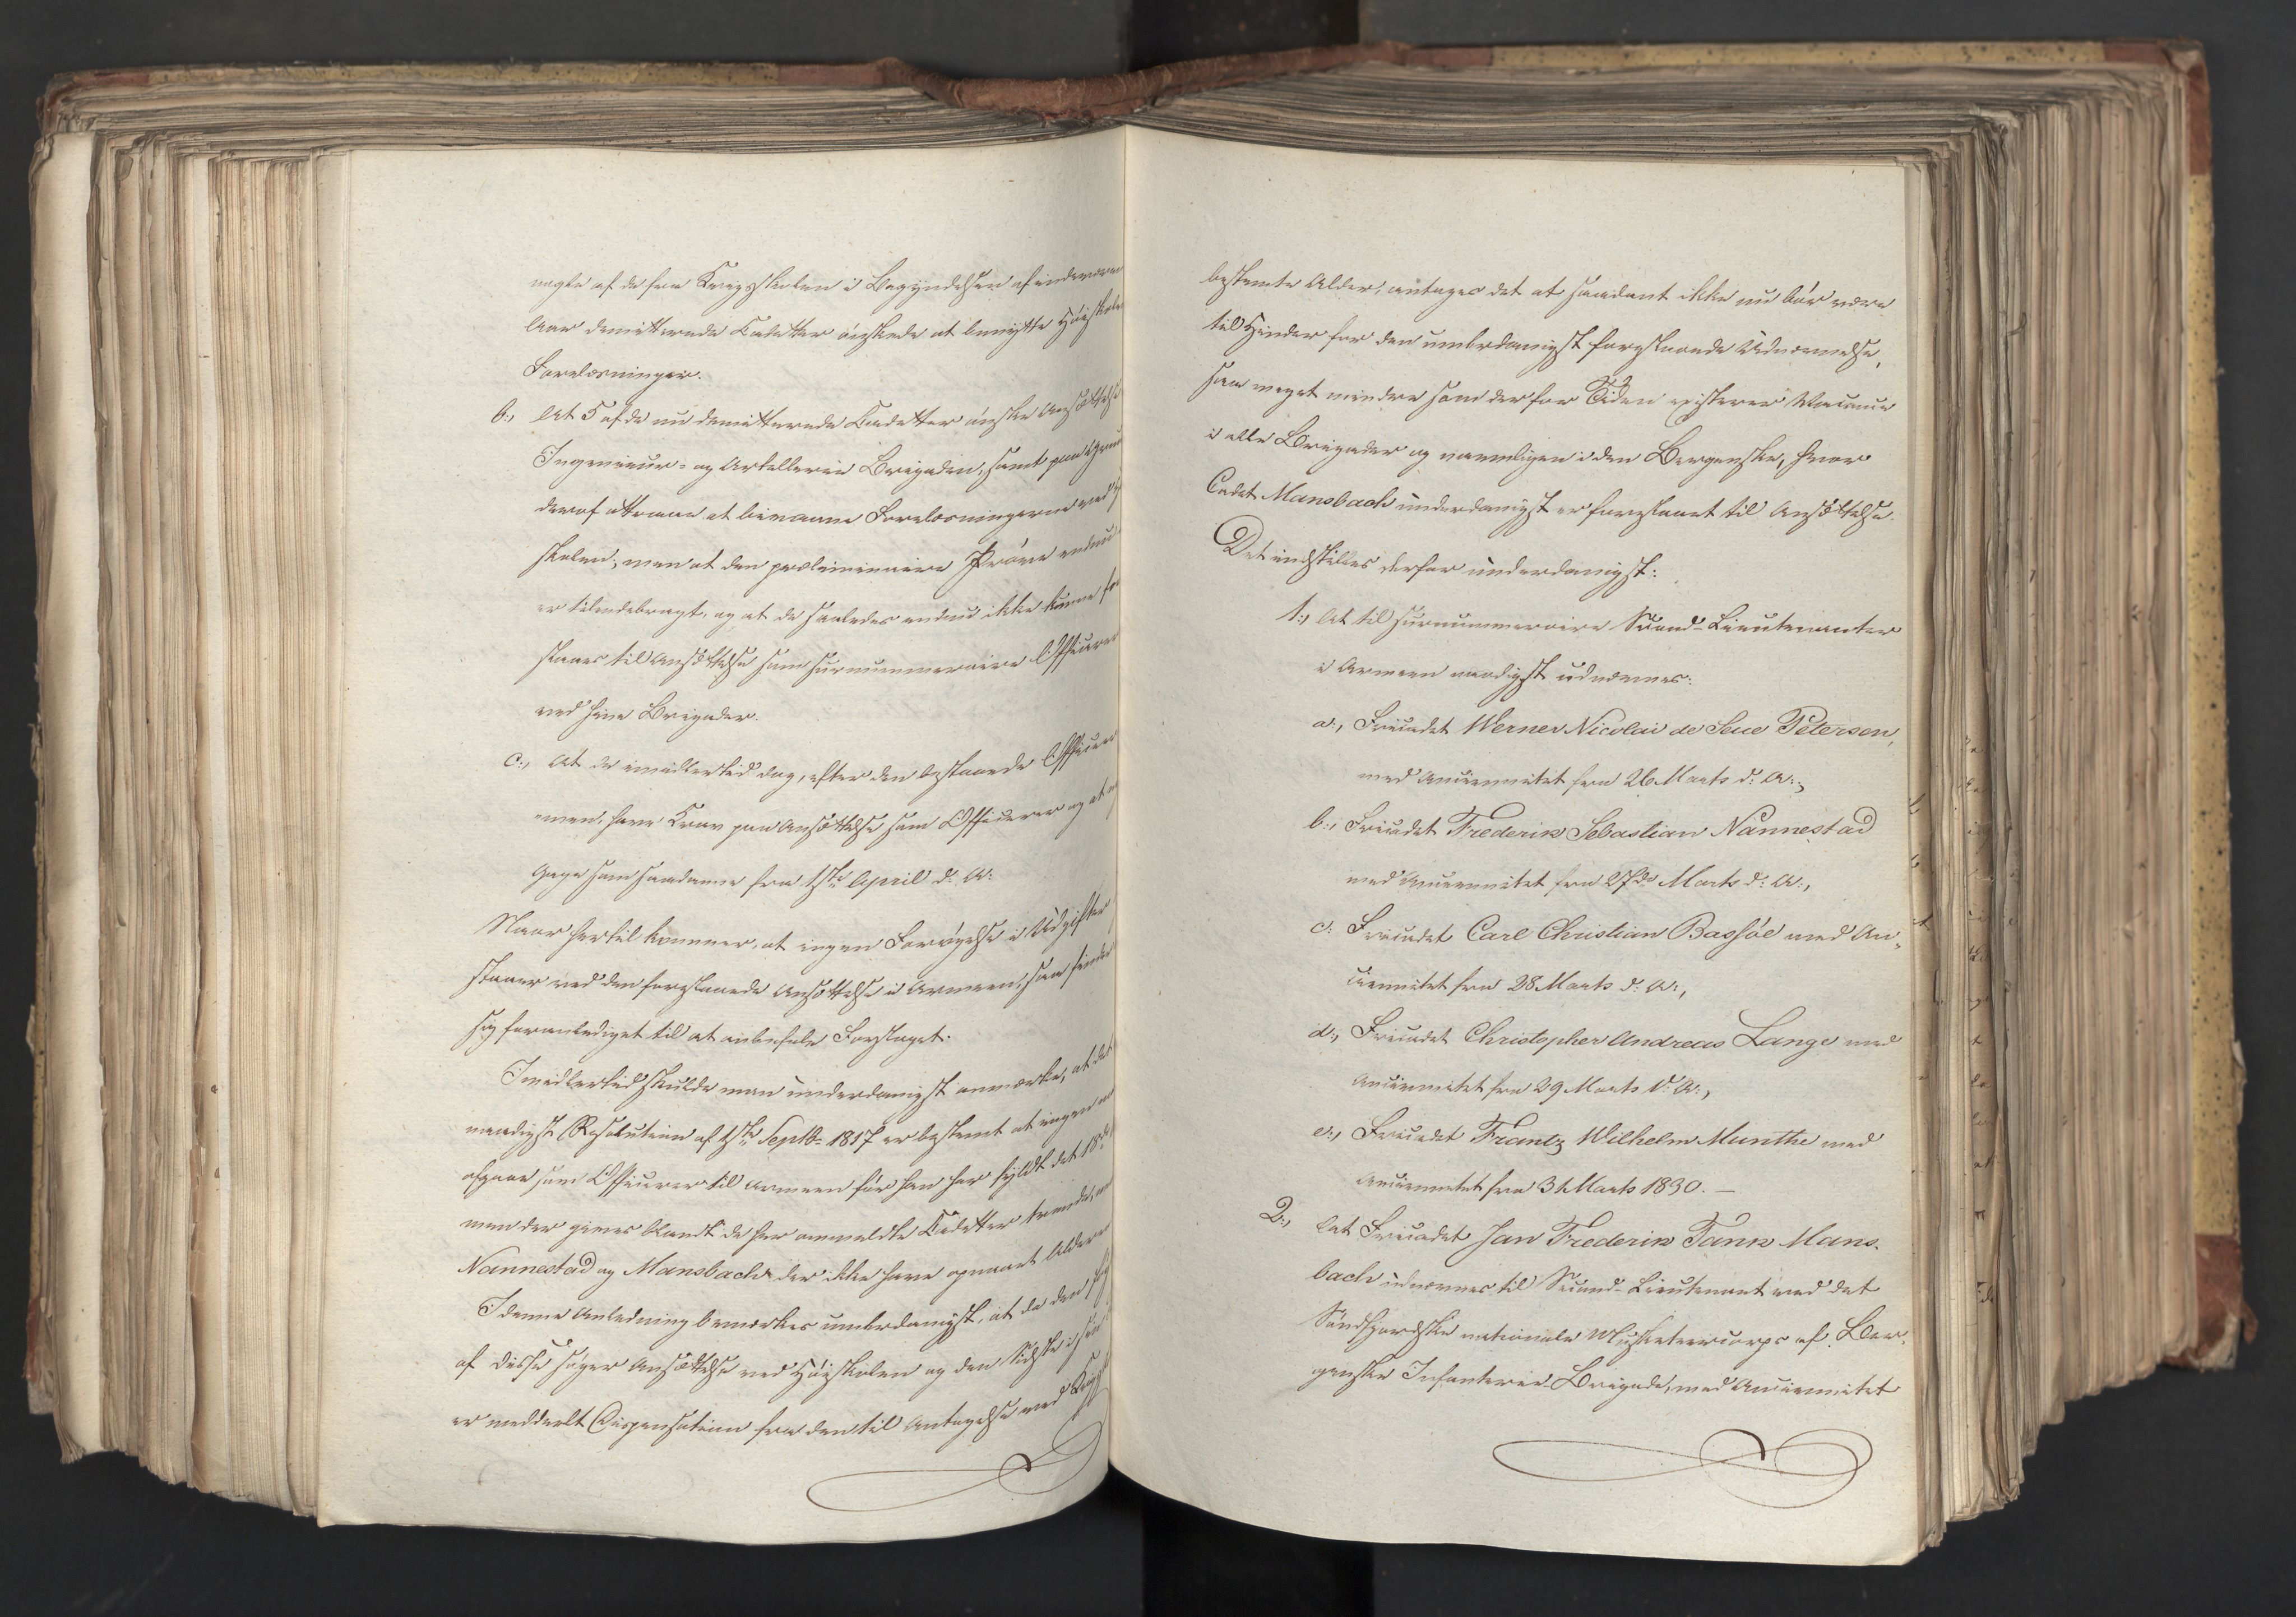 nogle af de fra Krigsskolen i Begyndelsen af indeværen
Aar demitterede Cadetter önskede at benytte Höiskolen
Forelæsninger.
b., At 5 af de nu demitterede Cadetter önske Ansættelse
Ingenieur- og Artillerie Brigaden, samt paa Grund
deraf attraae at bivaane Forelæsningerne ved
skolen, men at den præliminaire Pröve endnu
er tilendebragt, og at de saaledes endnu ikke kunne
slaaes til Ansættelse som surnummeraire Officerer
ved hine Brigader.
c., At de imidlertid dog, efter den bestaaede Officier
amen, have Krav paa Ansættelse som Officerer og at
Gage som saadanne fra 1ste April d. A:
Naar hertil kommer, at ingen Forögelse i Udgifter
staaer ved den foreslaaede Ansættelse i Armeen, saa finder
sig foranlediget til at anbefale Forslaget.
Imidlertid skulde man underdanigst anmærke, at det
naadigst Resolution af 1ste Septbr 1817 er bestemt at ingen
afgaae som Officerer til Armeen för han har fyldt det 18de
men der gives blandt de her anmeldte Cadetter tvende,
Nannestad og Mansbach der ikke have opnaaet Alderen
I denne Anledning bemærkes underdanigst, at da den
af disse söger Ansættelse ved Höiskolen og den Sidste i sin
er meddeelt Dispensation fra den til Antagelse ved Krigs
bestemte Alder, antages det at saadant ikke nu bör være
til Hinder for den underdanigst foreslaaede Udnævnelse,
saa meget mindre som der for Tiden existerer Vacance
i alle Brigader og navnligen i den Bergenske, hvor
Cadet Mansbach underdanigst er foreslaaet til Ansættelse.
Det indstilles derfor underdanigst:
1., At til surnummeraire Second-Lieutenanter
i Armeen naadigst udnævnes:
a., Fricadet Werner Nicolai de Seue Petersen,
med Anciennitet fra 26 Marts d: A:,
b., Fricadet Frederik Sebastian Nannestad
med Anciennitet fra 27de Marts d: A:,
c: Fricadet Carl Christian Bassöe med An-
ciennitet fra 28 Marts d: A:,
d., Fricadet Christopher Andreas Lange med
Anciennitet fra 29 Marts d: A:,
e., Fricadet Frantz Wilhelm Munthe med
Anciennitet fra 31 Marts 1830. —
2., At Fricadet Jan Frederik Tank Mans-
bach udnævnes til Second-Lieutenant ved det
Söndfjordske nationale Musketeercorps af Ber-
genske Infanterie-Brigade, med Anciennitet